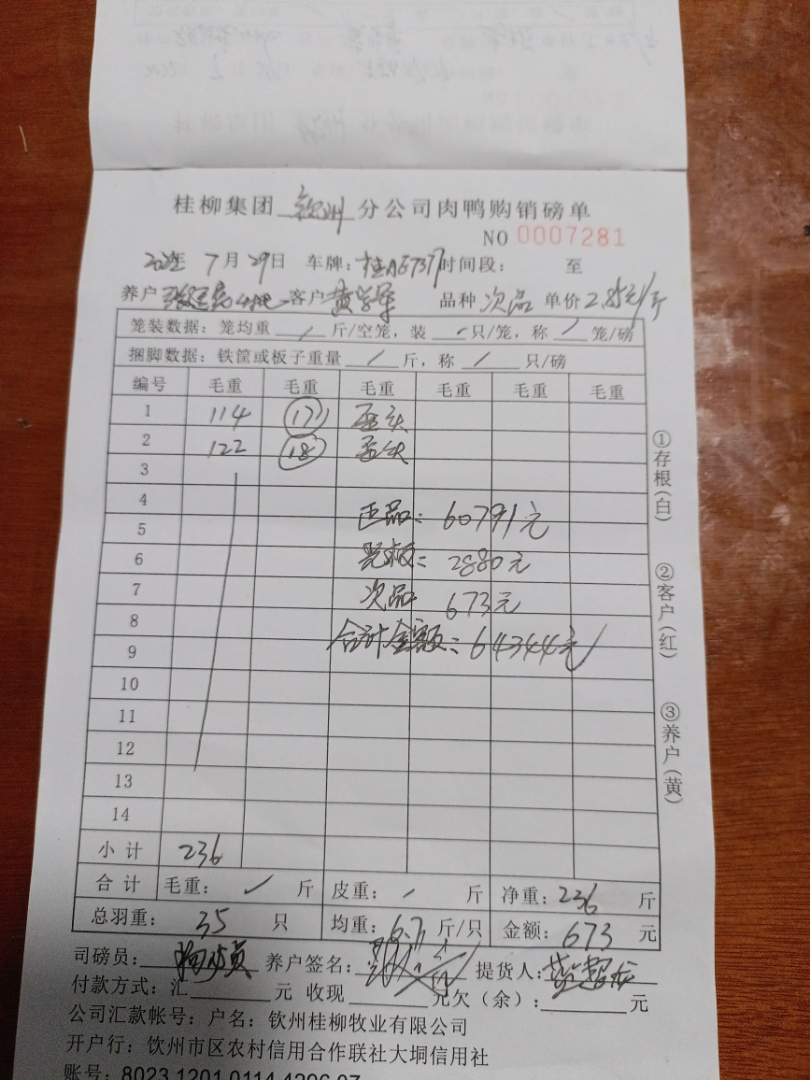 桂柳集团 钦州 分公司肉鸭购销磅单
NO 0007281
7月29日 车牌: 时间段: 至
养户 客户 黄学军 品种 次品 单价2.85元/斤
笼装数据: 笼均重 / 斤/空笼, 装 只/笼, 称 / 笼/磅
捆脚数据: 铁筐或板子重量 / 斤, 称 / 只/磅
编号 毛重 毛重 毛重 毛重 毛重 毛重
1 114 17 歪头
2 122 18 歪头
3
4
正品: 60791元
5
6 光板: 2880元
7 次品 673元
8
9 合计金额: 64344元
10
11
12
13
14
小计 236
合计 毛重: 斤 皮重: 斤 净重: 236 斤
总羽重: 35 只 均重: 6.7 斤/只 金额: 673 元
司磅员: 养户签名: 提货人:
付款方式: 汇 元 收现 元欠(余): 元
公司汇款帐号: 户名: 钦州桂柳牧业有限公司
开户行: 钦州市区农村信用合作联社大垌信用社
账号: 8023 1201 0114 4296 07
①存根(白)
②客户(红)
③养户(黄)